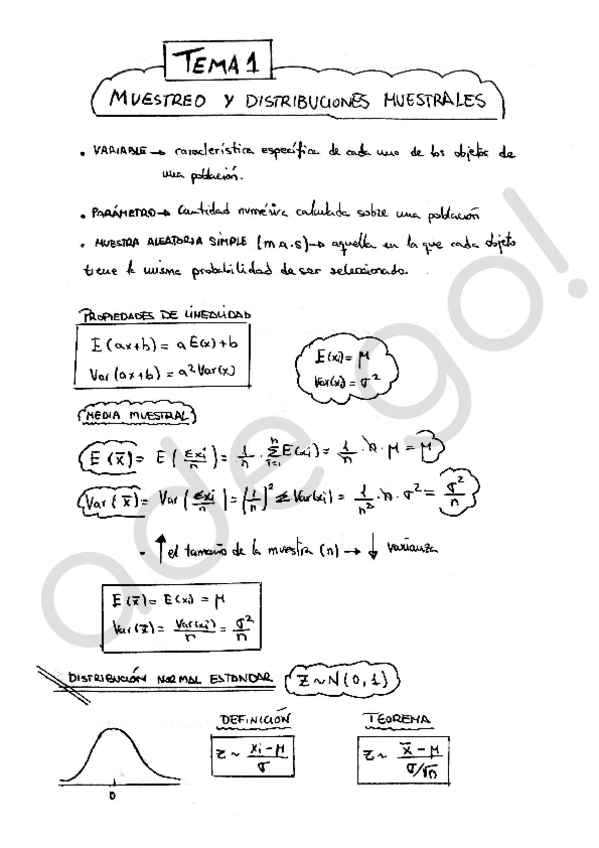 TEMA 1
MUESTREO Y DISTRIBUCIONES MUESTRALES
• VARIABLE → característica específica de cada uno de los objetos de
una población.
• PARÁMETRO → Cantidad numérica calculada sobre una población
• MUESTRA ALEATORIA SIMPLE (m.a.s) → aquella en la que cada objeto
tiene la misma probabilidad de ser seleccionado.
PROPIEDADES DE LINEALIDAD
E(ax+b) = a E(x) + b
Var(ax+b) = a² Var(x)
E(xi) = μ
Var(xi) = σ²
MEDIA MUESTRAL
E(x̄) = E(Σxi/n) = 1/n · Σⁿᵢ₌₁ E(xi) = 1/n · n · μ = μ
Var(x̄) = Var(Σxi/n) = (1/n)² Σ Var(xi) = 1/n² · n · σ² = σ²/n
• ↑ el tamaño de la muestra (n) → ↓ varianza
E(x̄) = E(xi) = μ
Var(x̄) = Var(xi)/n = σ²/n
DISTRIBUCIÓN NORMAL ESTANDAR Z ~ N(0,1)
DEFINICIÓN
Z ~ xi - μ / σ
TEOREMA
Z ~ x̄ - μ / σ/√n
0
ade go!